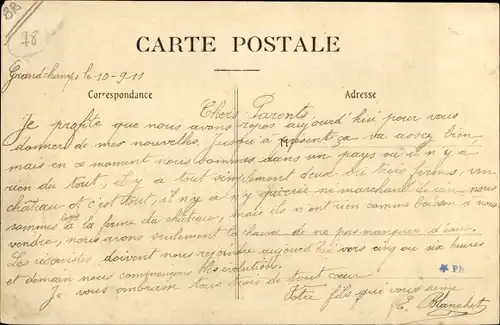 BB
78
CARTE POSTALE
Grandchamps le 10-9-11
Correspondance
Adresse
Chers Parents
Je profite que nous avons repos aujourd'hui pour vous
donner de mes nouvelles. Jusqu'à présent ça va assez bien
mais en ce moment nous sommes dans un pays où il n'y à
rien du tout, il y a tout simplement deux ou trois fermes, un
château et c'est tout, il n'y a ni épicerie ni marchand de vin, nous
sommes logés à la ferme du château, mais ils n'ont rien comme boisson à nous
vendre, nous avons seulement la chance de ne pas manquer d'eau.
Les réservistes doivent nous rejoindre aujourd'hui vers cinq ou six heures
et demain nous commençons les évolutions.
Je vous embrasse tous trois de tout cœur
Votre fils qui vous aime
E. Blanchet